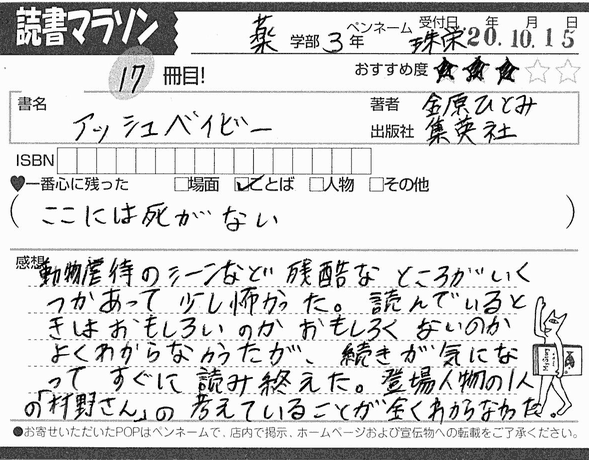 読書マラソン
薬 学部 3 年 ペンネーム 珠栄 受付日 年 月 日 20.10.15
17 冊目! おすすめ度 ★★★☆☆
書名 アッシュベイビー
著者 金原ひとみ
出版社 集英社
ISBN
♥一番心に残った □場面 ☑ことば □人物 □その他
(ここには死がない)
感想 動物虐待のシーンなど残酷なところがいく
つかあって少し怖かった。読んでいると
きはおもしろいのかおもしろくないのか
よくわからなかったが、続きが気にな
ってすぐに読み終えた。登場人物の1人
の「村野さん」の考えていることが全くわからなかった。
●お寄せいただいたPOPはペンネームで、店内で掲示、ホームページおよび宣伝物への転載をご了承ください。